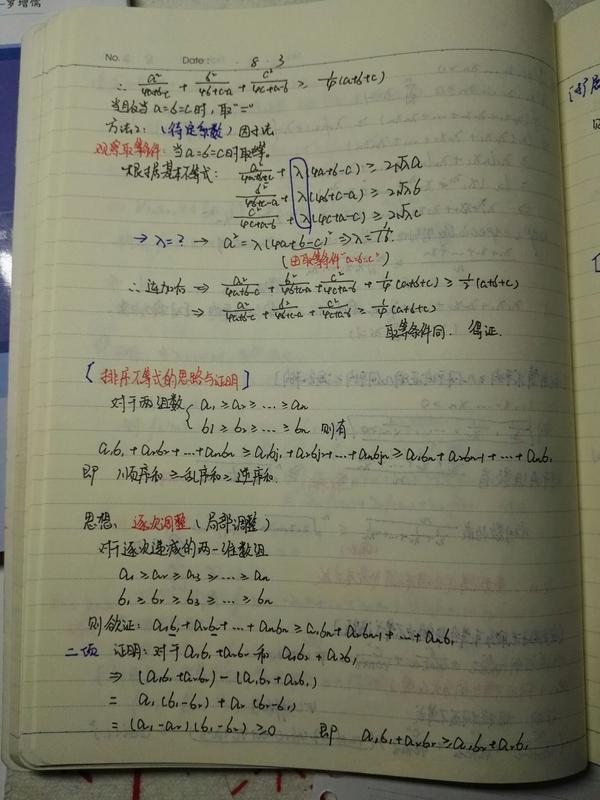 罗增儒
No. Date 8 3
∴ a²/(4a+b-c) + b²/(4b+c-a) + c²/(4c+a-b) ≥ 1/4(a+b+c)
当且仅当 a=b=c时,取"="
方法2:(待定系数)因式法
观察取等条件:当a=b=c时取等.
根据基本不等式: a²/(4a+b-c) + λ(4a+b-c) ≥ 2√λ a
b²/(4b+c-a) + λ(4b+c-a) ≥ 2√λ b
c²/(4c+a-b) + λ(4c+a-c) ≥ 2√λ c
→ λ=? → a² = λ(4a+b-c)² ⇒ λ=1/16.
(由取等条件"a=b=c")
∴ 连加后 → a²/(4a+b-c) + b²/(4b+c-a) + c²/(4c+a-b) + 1/4(a+b+c) ≥ 1/2(a+b+c)
⇒ a²/(4a+b-c) + b²/(4b+c-a) + c²/(4c+a-b) ≥ 1/4(a+b+c)
取等条件同. 得证.
[排序不等式的思路与证明]
对于两组数 { a₁ ≥ a₂ ≥ … ≥ aₙ
b₁ ≥ b₂ ≥ … ≥ bₙ 则有
a₁b₁ + a₂b₂ + … + aₙbₙ ≥ a₁bj₁ + a₂bj₂ + … + aₙbjₙ ≥ a₁bₙ + a₂bₙ₋₁ + … + aₙb₁
即 顺序和 ≥ 乱序和 ≥ 逆序和.
思想、逐次调整(局部调整)
对于逐次递减的两一维数组
a₁ ≥ a₂ ≥ a₃ ≥ … ≥ aₙ
b₁ ≥ b₂ ≥ b₃ ≥ … ≥ bₙ
则欲证: a₁b₁ + a₂b₂ + … + aₙbₙ ≥ a₁bₙ + a₂bₙ₋₁ + … + aₙb₁
二项 证明: 对于 a₁b₁ + a₂b₂ 和 a₁b₂ + a₂b₁
⇒ (a₁b₁ + a₂b₂) - (a₁b₂ + a₂b₁)
= a₁(b₁-b₂) + a₂(b₂-b₁)
= (a₁-a₂)(b₁-b₂) ≥ 0 即 a₁b₁ + a₂b₂ ≥ a₁b₂ + a₂b₁